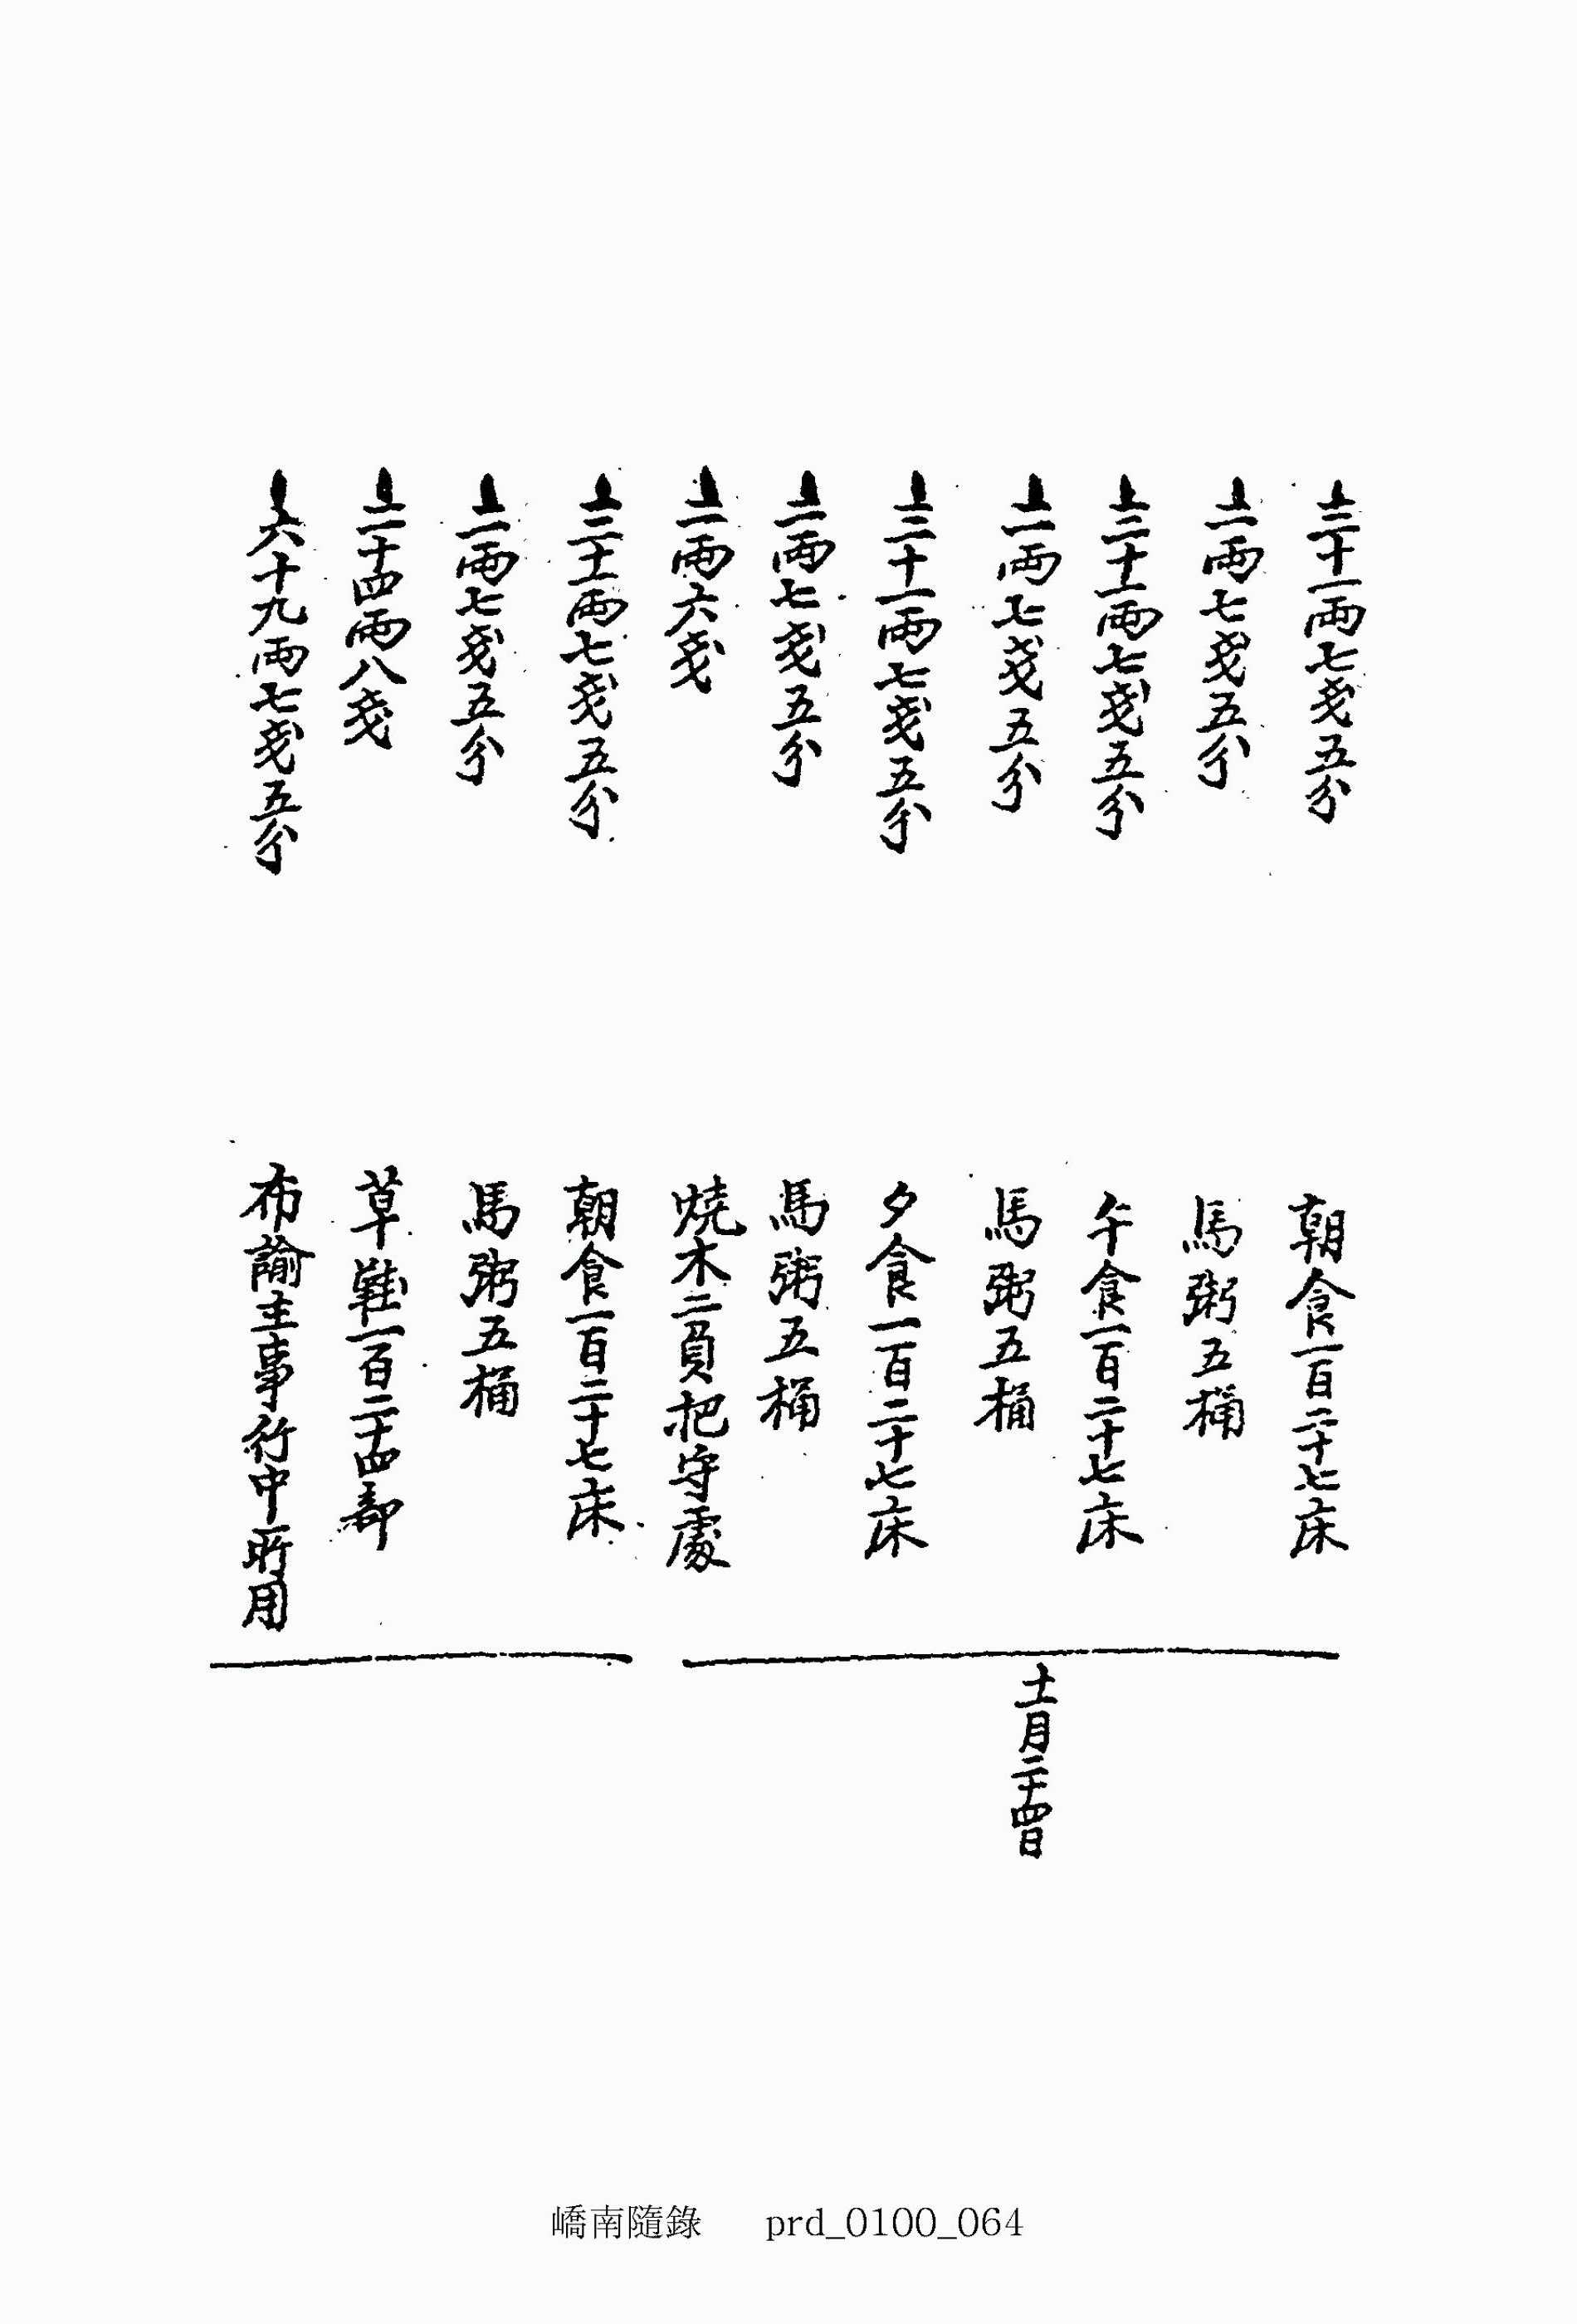 三十一兩七戔五分 朝食一百二十七床
一兩七戔五分 馬粥五桶
三十一兩七戔五分 午食一百二十七床
一兩七戔五分 馬粥五桶
三十一兩七戔五分 夕食一百二十七床
一兩七戔五分 馬粥五桶
一兩六戔 燒木二負把守處
三十一兩七戔五分 朝食一百二十七床
一兩七戔五分 馬粥五桶
二十四兩八戔 草鞋一百二十四部
六十九兩七戔五分 布諭主事行中所用
十一月二十四日
嶠南隨錄 prd_0100_064